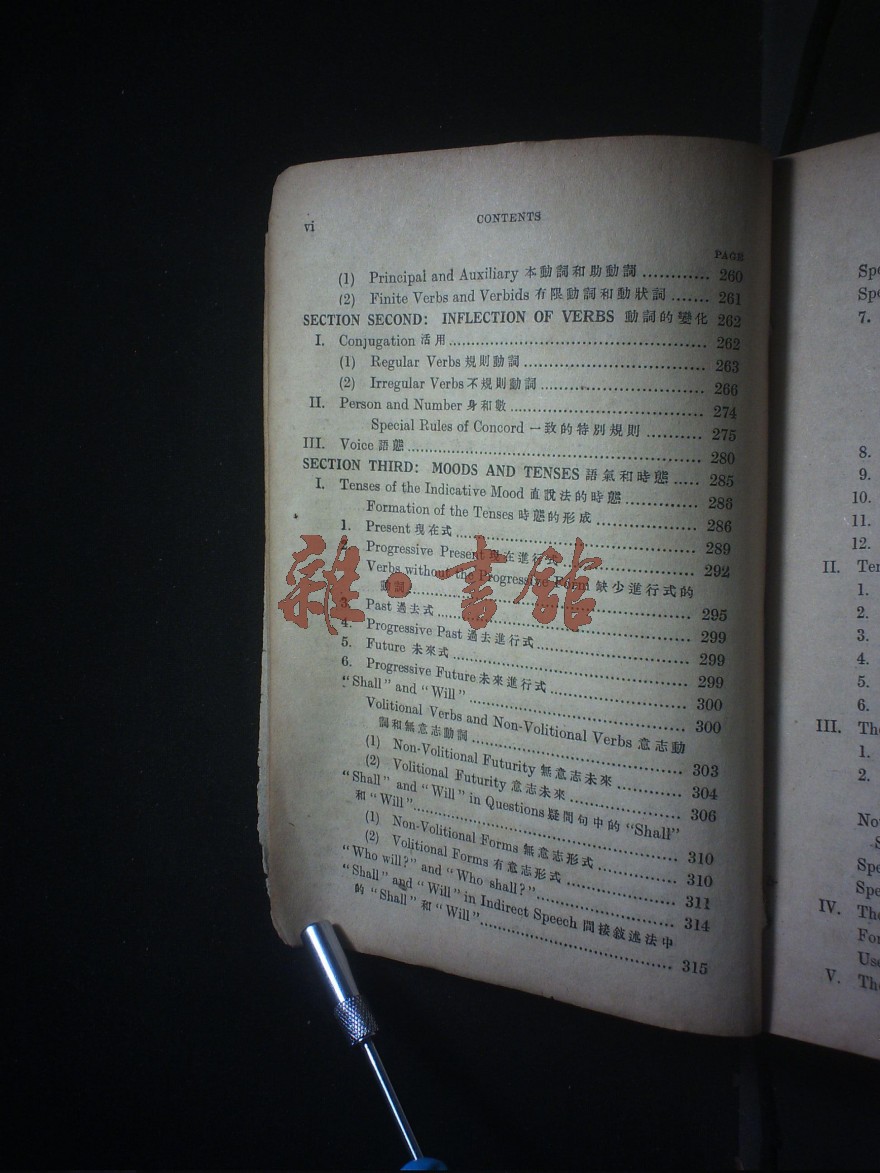 vi CONTENTS
PAGE
(1) Principal and Auxiliary 本動詞和助動詞 ............ 260
(2) Finite Verbs and Verbids 有限動詞和動狀詞 ....... 261
SECTION SECOND: INFLECTION OF VERBS 動詞的變化 262
I. Conjugation 活用 ............ 262
(1) Regular Verbs 規則動詞 ............ 263
(2) Irregular Verbs 不規則動詞 ............ 266
II. Person and Number 身和數 ............ 274
Special Rules of Concord 一致的特別規則 .......... 275
III. Voice 語態 ............ 280
SECTION THIRD: MOODS AND TENSES 語氣和時態 ..... 285
I. Tenses of the Indicative Mood 直說法的時態 ............ 286
Formation of the Tenses 時態的形成 ............ 286
1. Present 現在式 ............ 289
2. Progressive Present 現在進行式 ............ 292
Verbs without the Progressive Form 缺少進行式的
動詞 ............ 295
3. Past 過去式 ............ 299
4. Progressive Past 過去進行式 ............ 299
5. Future 未來式 ............ 299
6. Progressive Future 未來進行式 ............ 300
"Shall" and "Will" ............ 300
Volitional Verbs and Non-Volitional Verbs 意志動
詞和無意志動詞 ............ 303
(1) Non-Volitional Futurity 無意志未來 ............ 304
(2) Volitional Futurity 意志未來 ............ 306
"Shall" and "Will" in Questions 疑問句中的 "Shall"
和 "Will" ............ 310
(1) Non-Volitional Forms 無意志形式 ............ 310
(2) Volitional Forms 有意志形式 ............ 311
"Who will?" and "Who shall?" ............ 314
"Shall" and "Will" in Indirect Speech 間接敘述法中
的 "Shall" 和 "Will" ............ 315
雜·書館
Spe
Spe
7.
8.
9.
10.
11.
12.
II. Ten
1.
2.
3.
4.
5.
6.
III. The
1.
2.
No
S
Spe
Spe
IV. The
For
Use
V. The